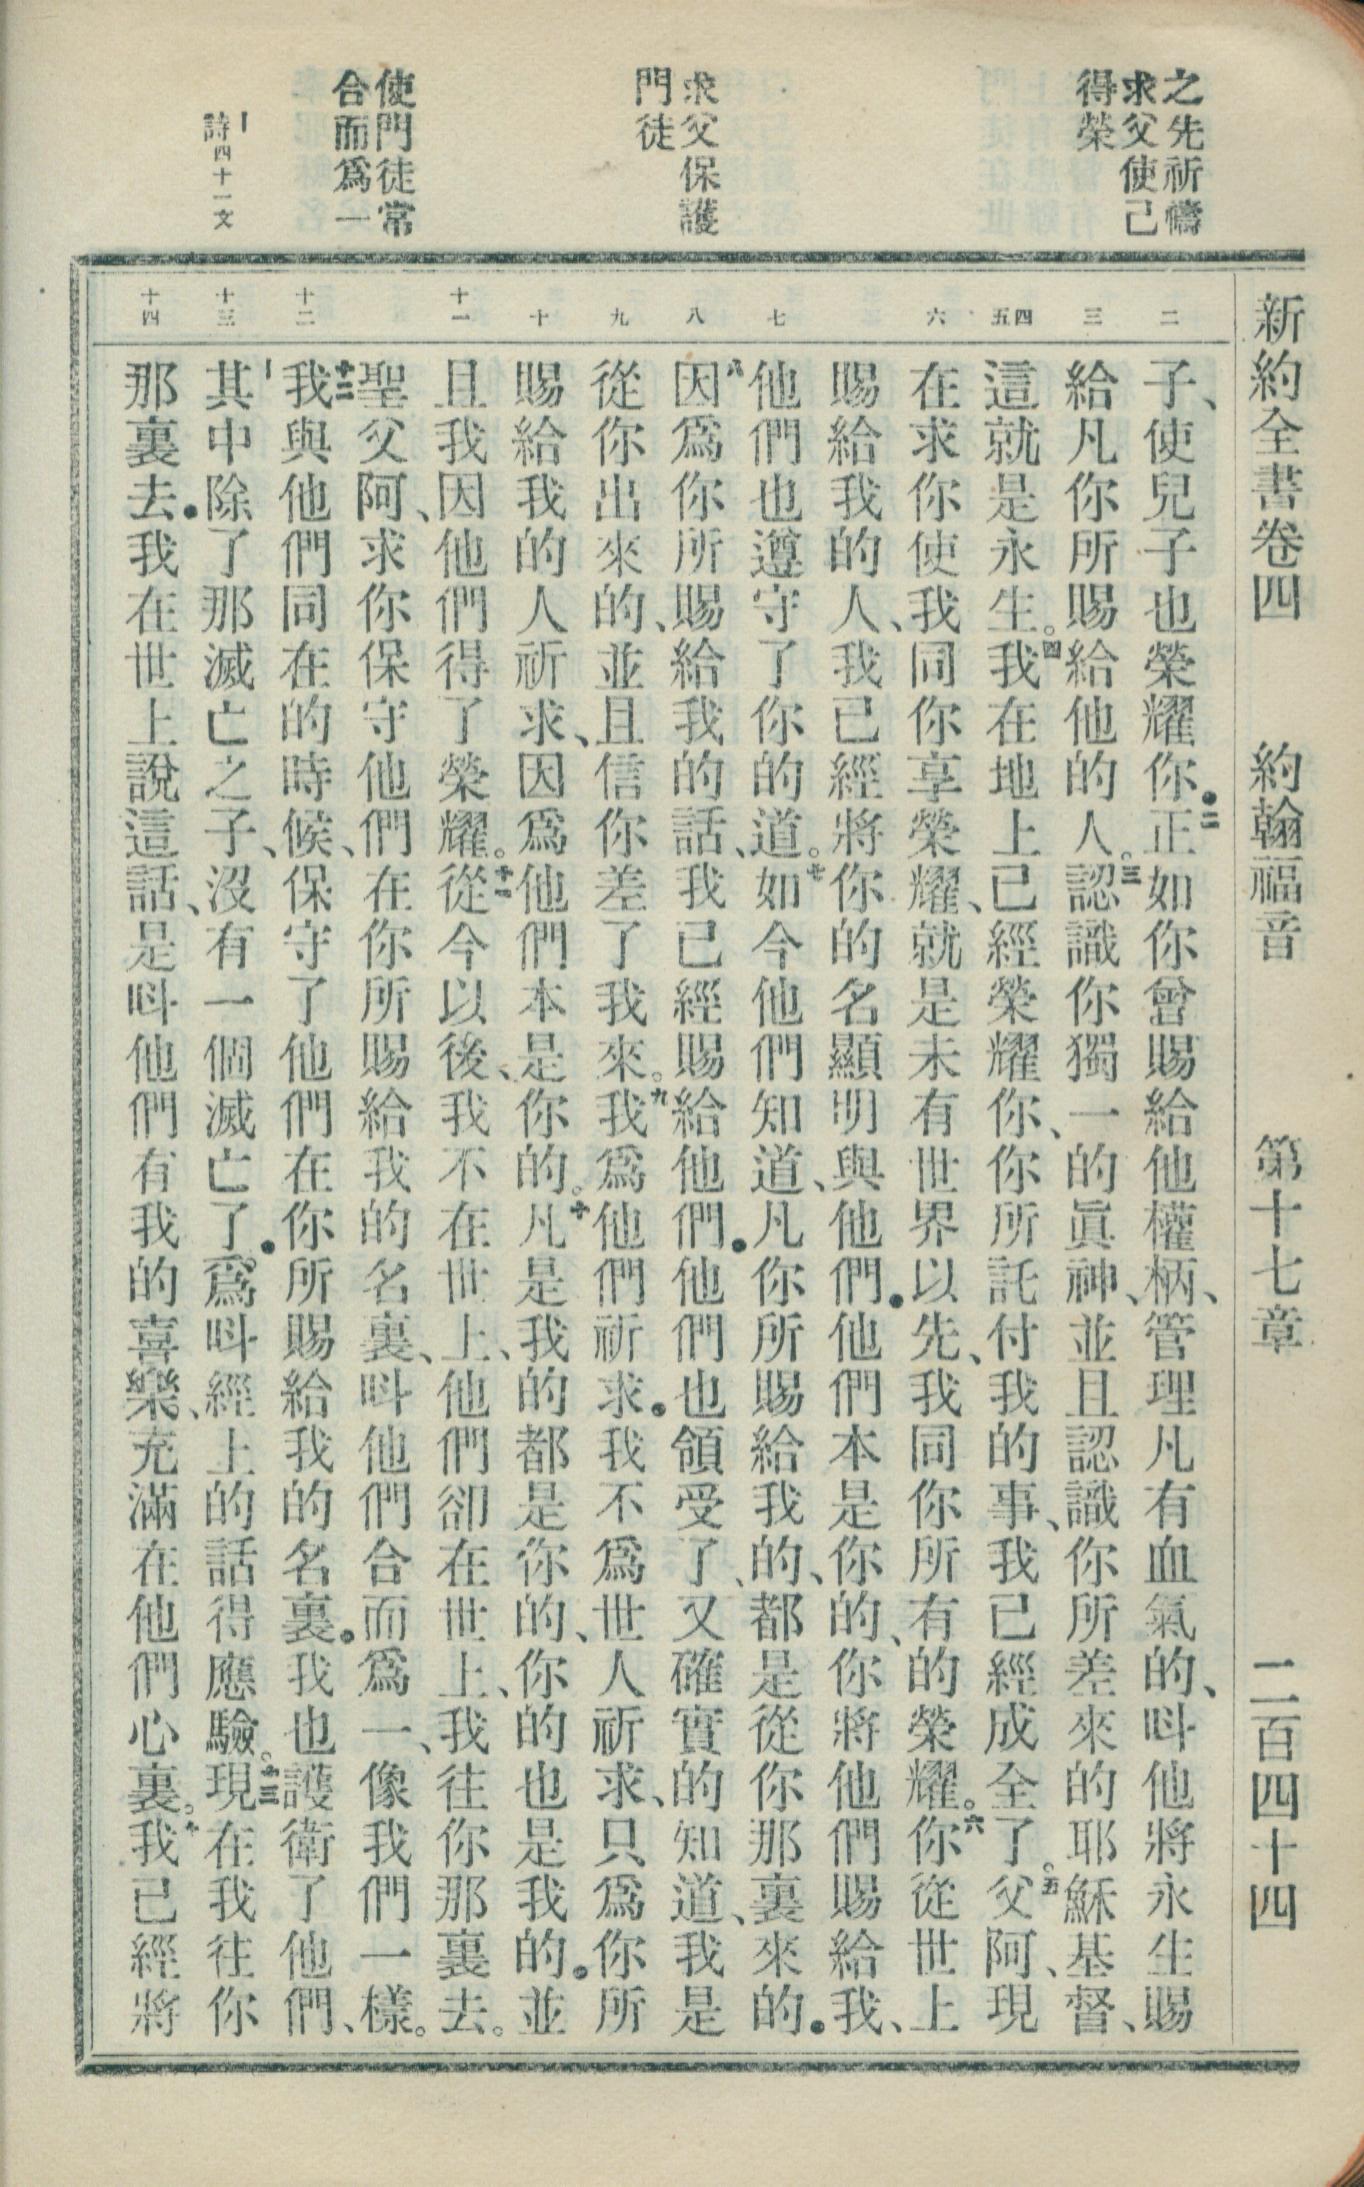 新約全書卷四 約翰福音 第十七章 二百四十四
之先祈禱
求父使己
得榮
求父保護
門徒
使門徒常
合而爲一
一詩四十一文
二
三
四
五
六
七
八
九
十
十一
十二
十三
十四
子、使兒子也榮耀你●二正如你曾賜給他權柄、管理凡有血氣的、呌他將永生賜
給凡你所賜給他的人。三認識你獨一的眞神、並且認識你所差來的耶穌基督、
這就是永生。四我在地上已經榮耀你、你所託付我的事、我已經成全了。五父阿、現
在求你使我同你享榮耀、就是未有世界以先、我同你所有的榮耀。六你從世上
賜給我的人、我已經將你的名顯明與他們●他們本是你的、你將他們賜給我、
他們也遵守了你的道。七如今他們知道、凡你所賜給我的、都是從你那裏來的●
八因爲你所賜給我的話、我已經賜給他們●他們也領受了、又確實的知道、我是
從你出來的、並且信你差了我來。九我爲他們祈求●我不爲世人祈求、只爲你所
賜給我的人祈求、因爲他們本是你的。十凡是我的都是你的、你的也是我的●並
且我因他們得了榮耀。十一從今以後、我不在世上、他們卻在世上、我往你那裏去。
聖父阿、求你保守他們在你所賜給我的名裏、呌他們合而爲一、像我們一樣。
十二我與他們同在的時候、保守了他們在你所賜給我的名裏●我也護衛了他們、
一其中除了那滅亡之子、沒有一個滅亡了●爲呌經上的話得應驗。十三現在我往你
那裏去●我在世上說這話、是呌他們有我的喜樂、充滿在他們心裏。十我已經將